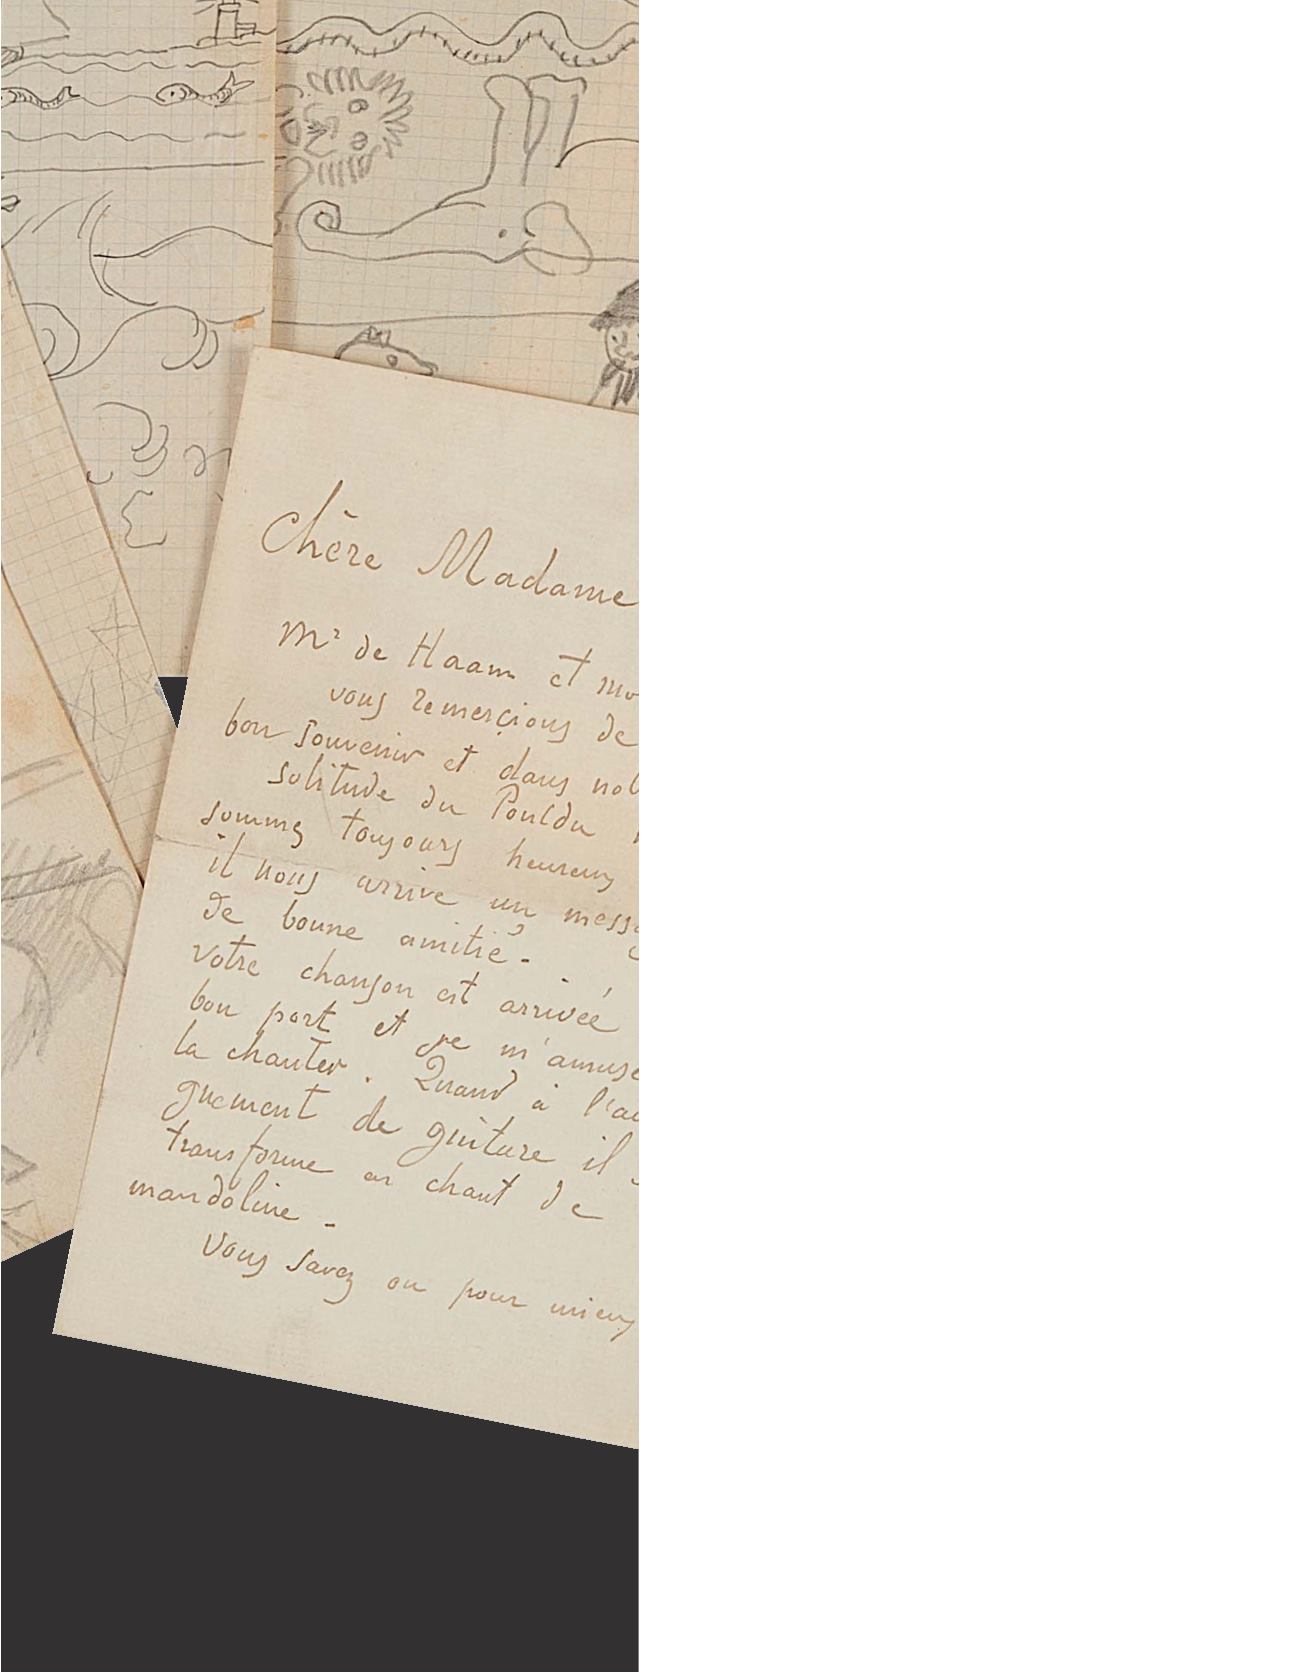 Chère Madame
Mr de Haan et mo
vous remerçions de
bon souvenir et dans not
solitude du Pouldu
sommes toujours heureux
il nous arrive un messa
de bonne amitié -
Votre chanson est arrivée
bon port et je m'amuse
la chanter. Quand à l'ac
gnement de guitare il
transforme en chant de
mandoline -
Vous savez ou pour mieux